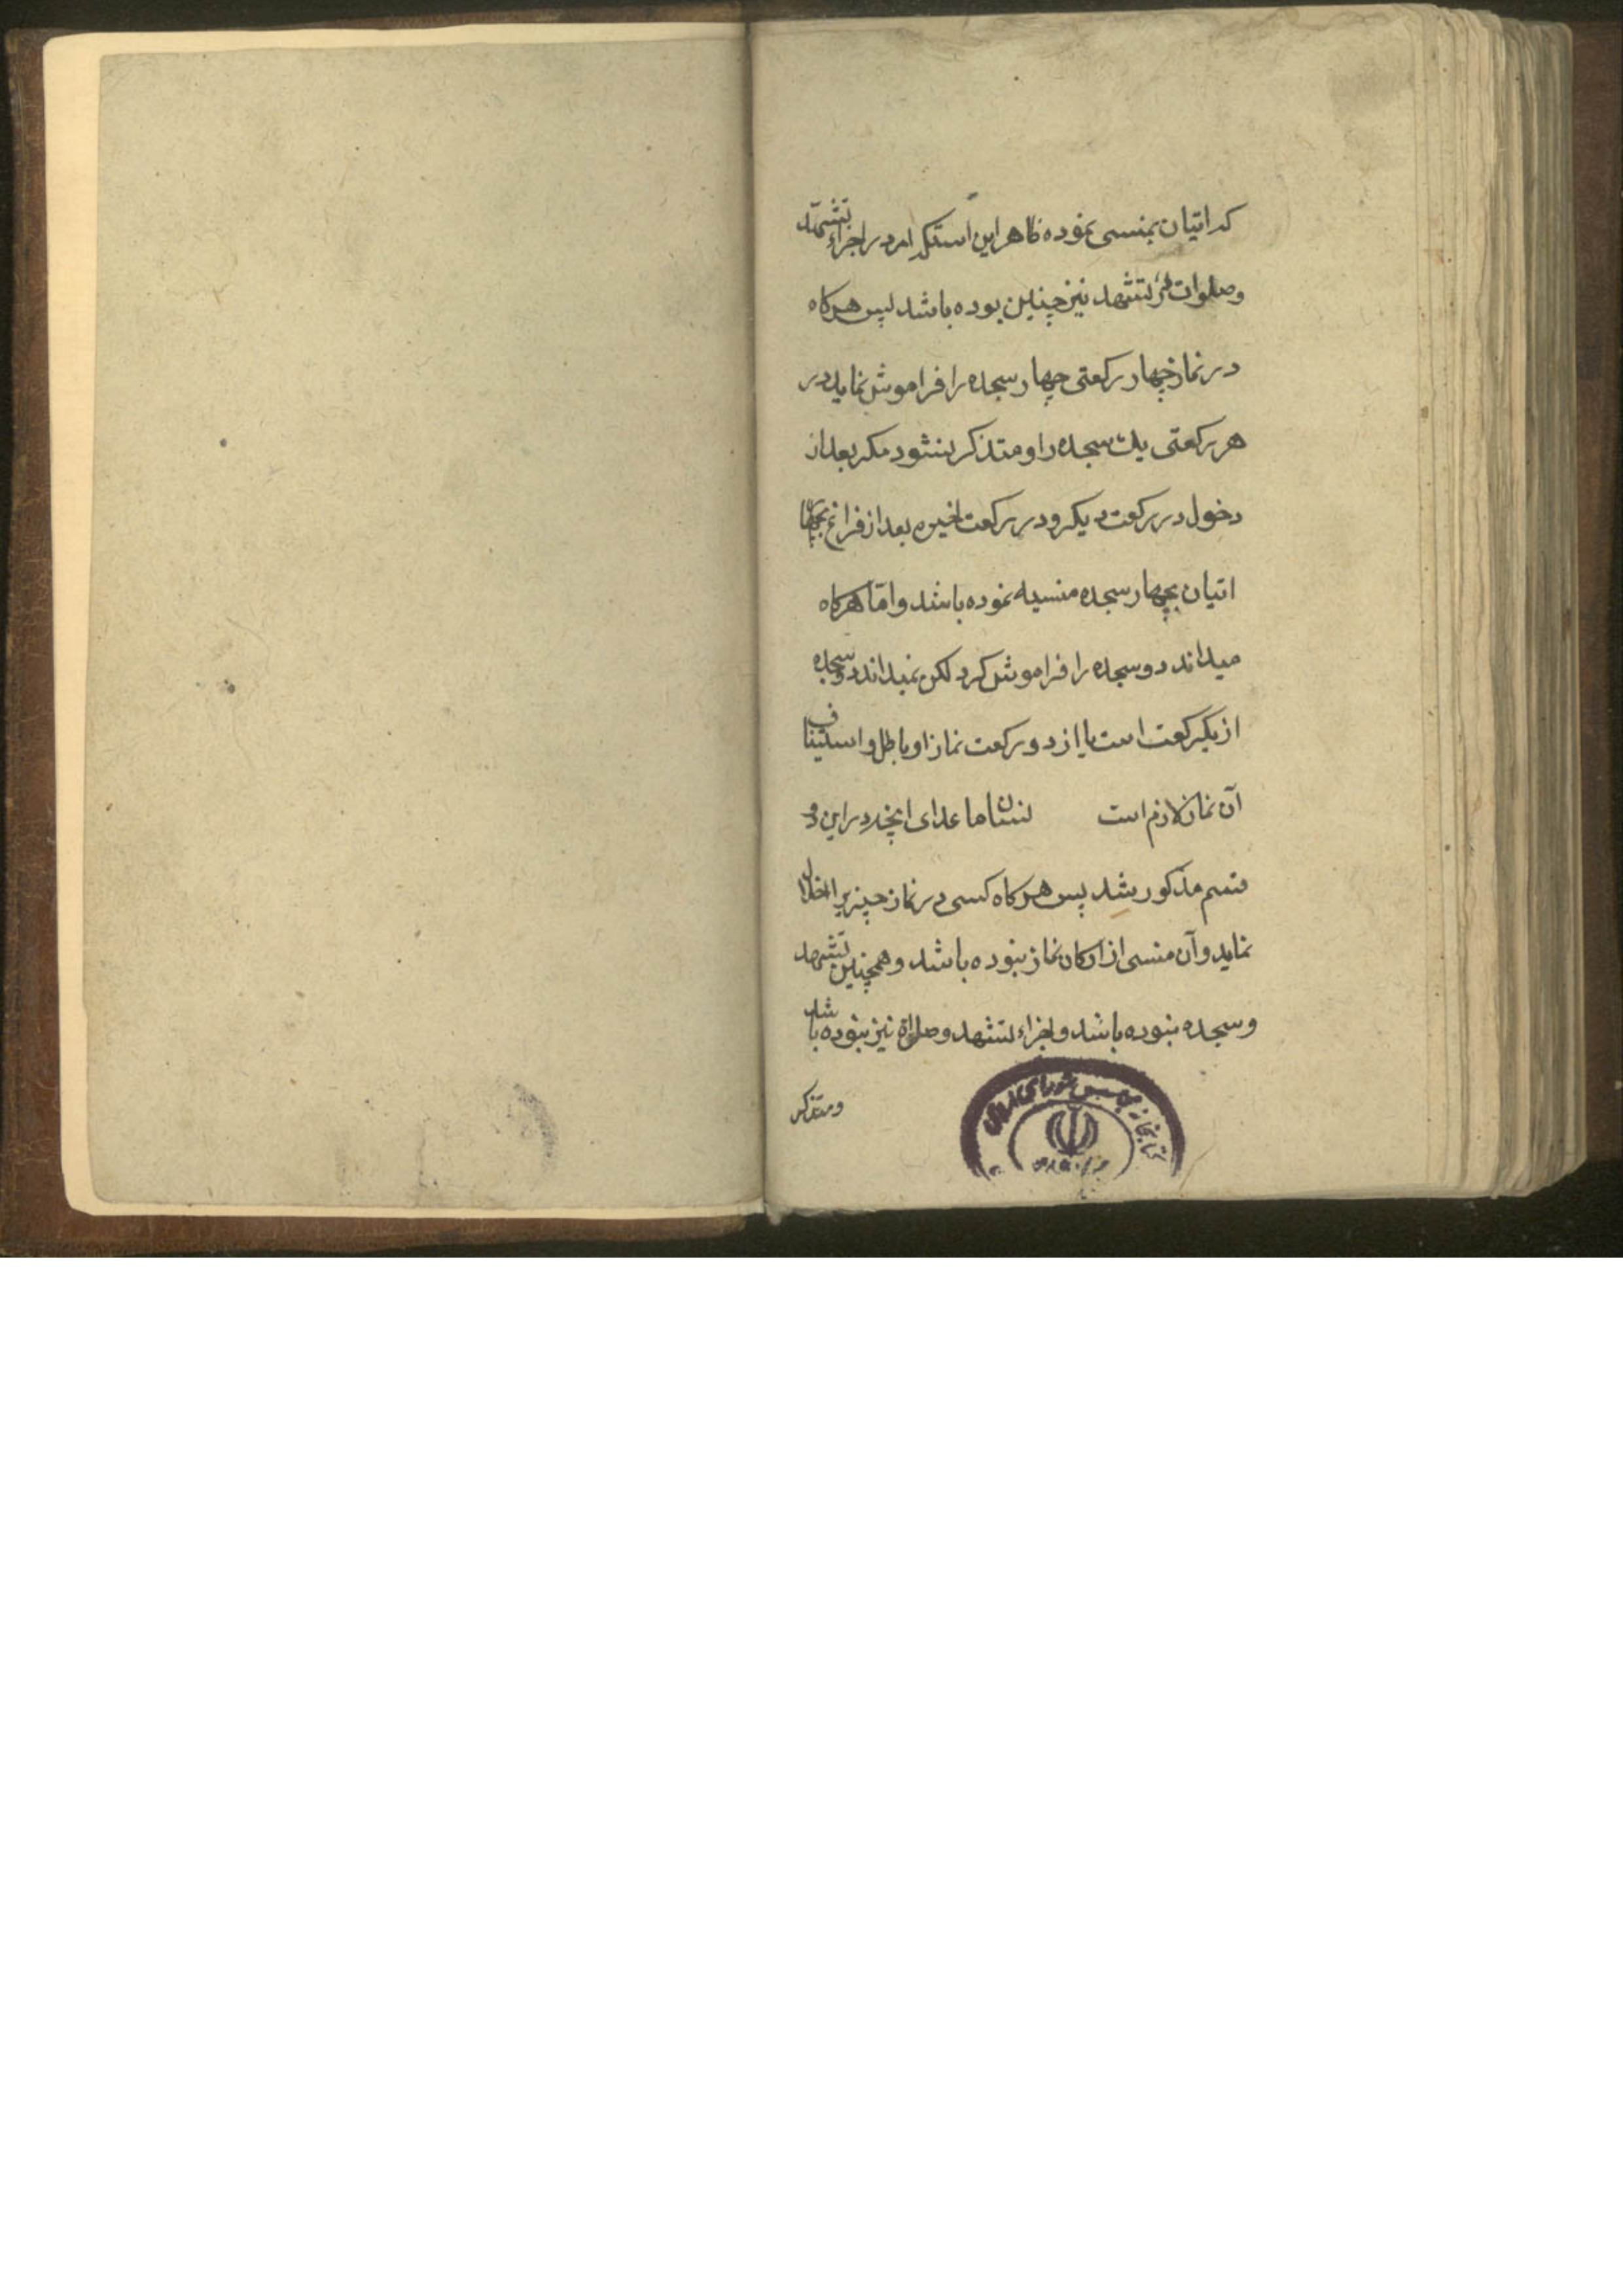 که اتیان بمنسی نموده ظاهر این استکه امر در اجزاء تشهد
وصلوات در تشهد نیز چنین بوده باشد پس هرکاه
در نماز چهار رکعتی چهار سجده را فراموش نماید در
هر رکعتی یك سجده را و متذکر نشود مکر بعد از
دخول در رکعت دیکر و در رکعت اخیره بعد از فراغ
اتیان بچهار سجده منسیه نموده باشد و امّا هرکاه
میداند دو سجده را فراموش کرد لکن نمیداند دو سجده
از یکرکعت است یا از دو رکعت نماز او باطل و استیناف
آن نماز لازم است نسیان ما عدای آنچه در این دو
قسم مذکور شد پس هرکاه کسی در نماز چیزیرا اخلال
نماید و آن منسی از ارکان نماز نبوده باشد و همچنین تشهد
و سجده نبوده باشد و اجزاء تشهد و صلواة نیز نبوده باشد
و متذکر
کتابخانه مجلس شورای اسلامی